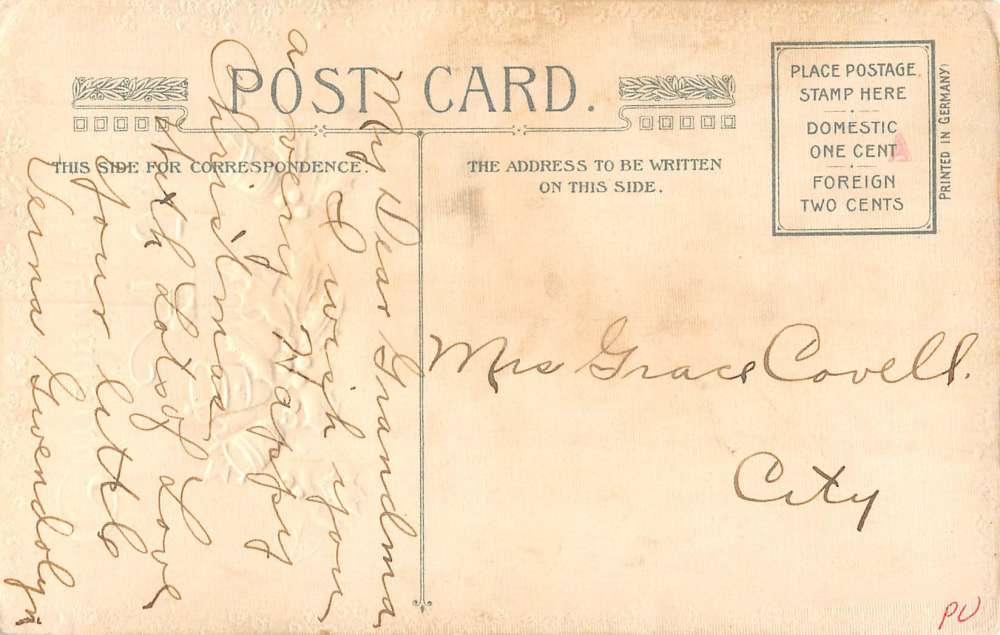 POST CARD.
THIS SIDE FOR CORRESPONDENCE.
THE ADDRESS TO BE WRITTEN
ON THIS SIDE.
PLACE POSTAGE
STAMP HERE
DOMESTIC
ONE CENT
FOREIGN
TWO CENTS
PRINTED IN GERMANY
My Dear Grandma
I wish you
a very Happy
Christmas
with Lots of Love
your little
Verna Gwendolyn
Mrs Grace Covell.
City
PU